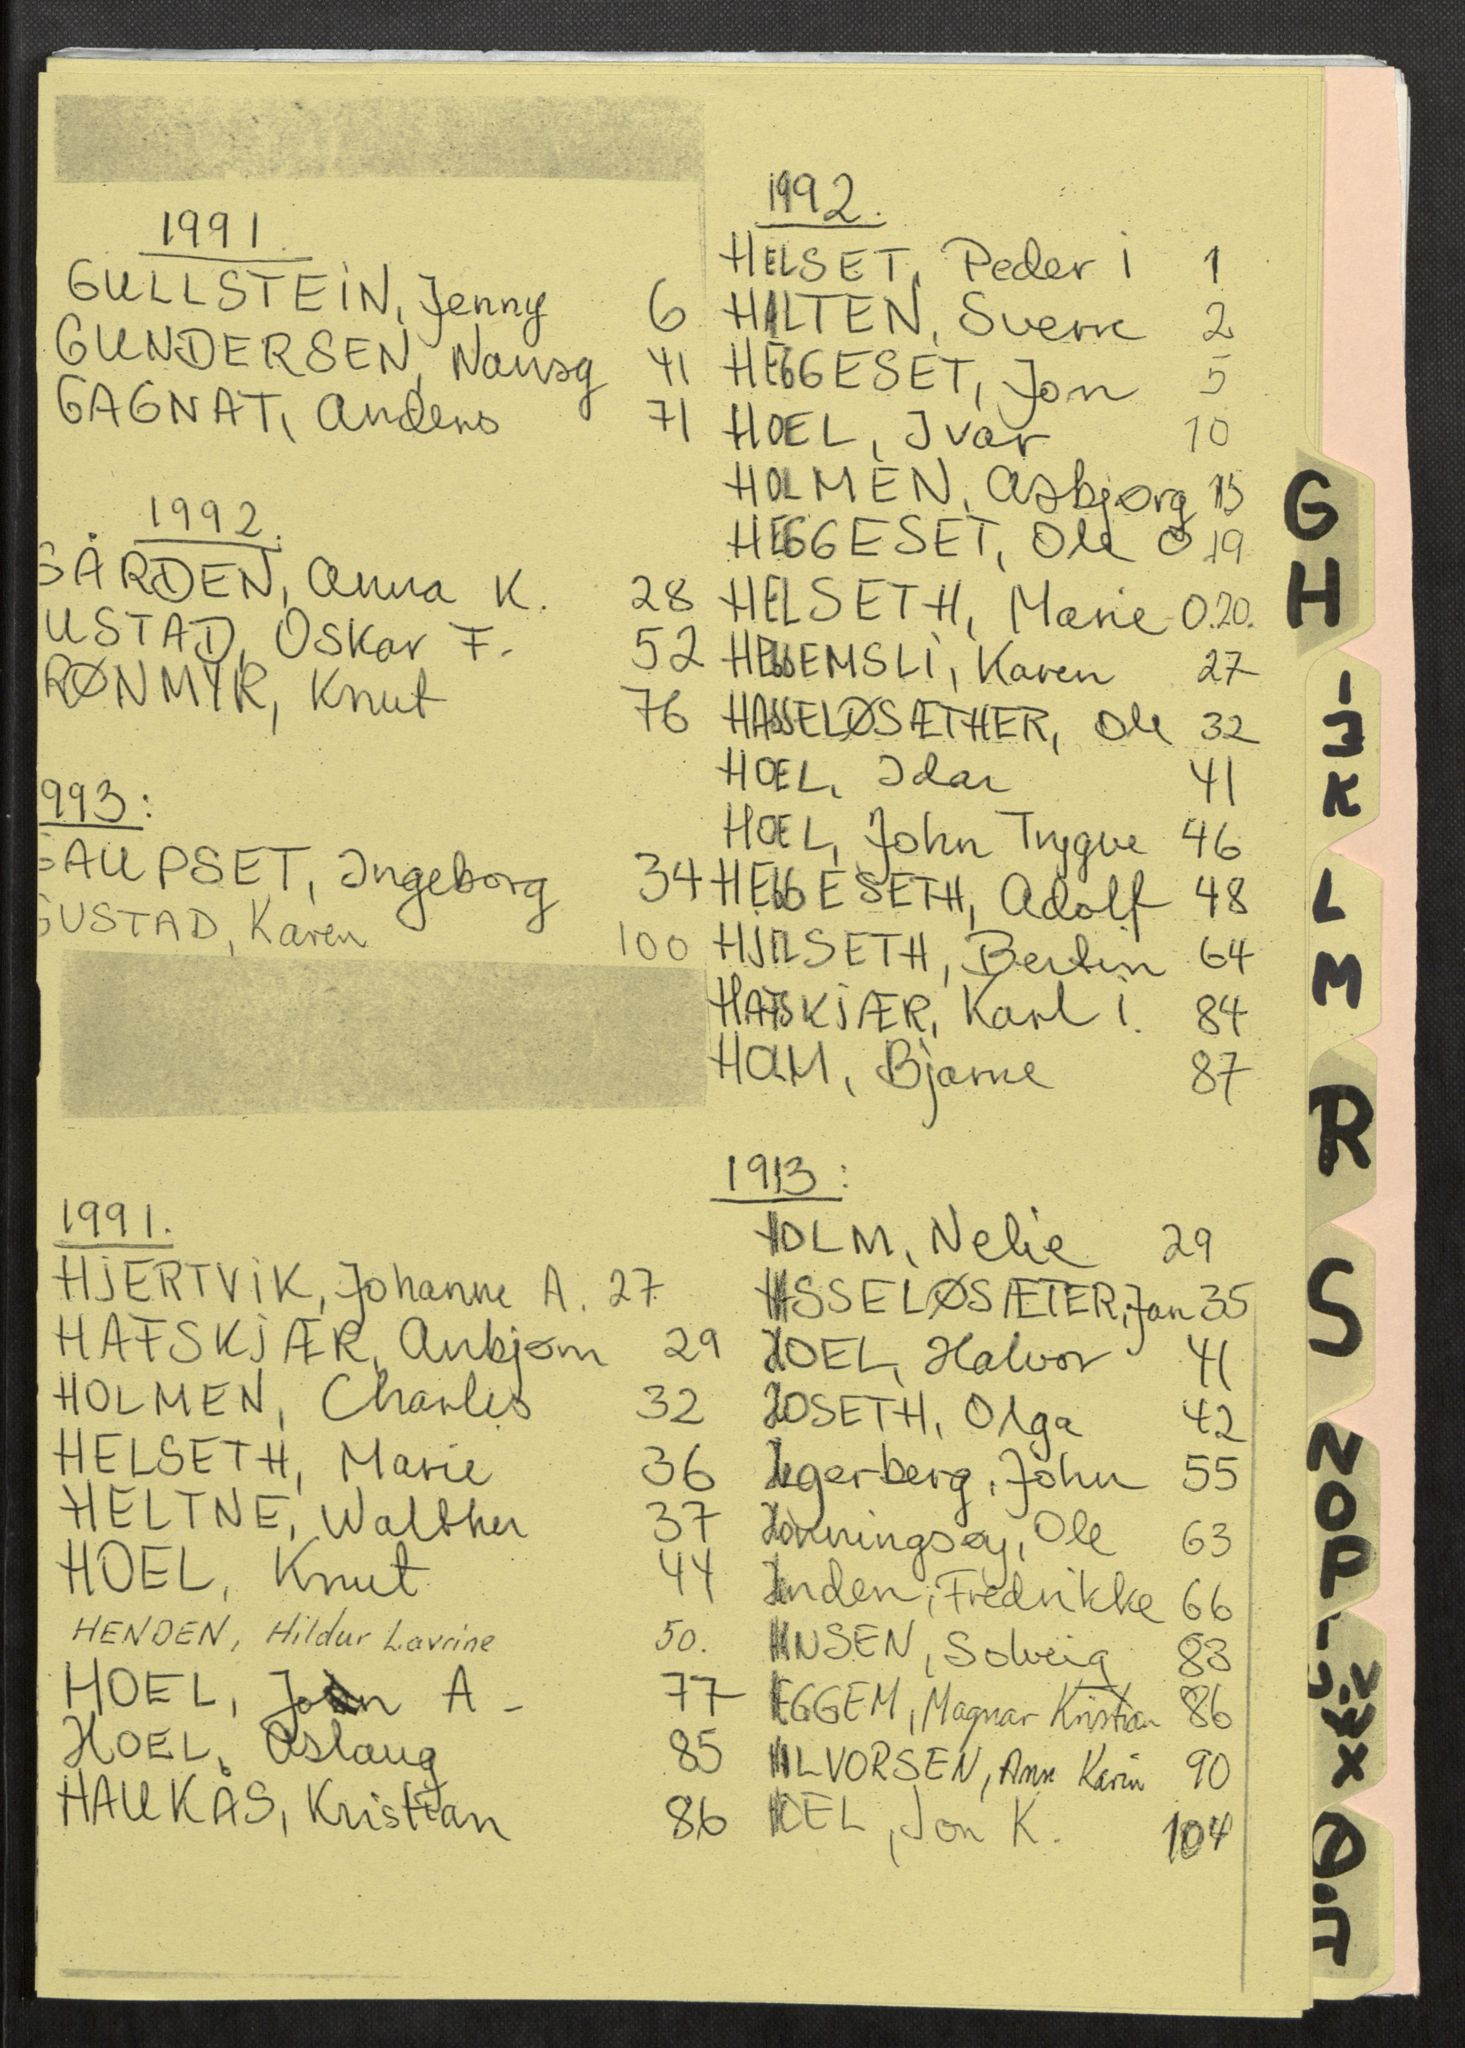 1991.
GULLSTEIN, Jenny 6
GUNDERSEN, 41
GAGNAT, Anders 71
1992.
GÅRDEN, Anna K. 28
USTAD, Oskar F. 52
RØNMYR, Knut 76
993:
GAUPSET, Ingeborg 34
GUSTAD, Karen 100
1991.
HJERTVIK, Johanne A. 27
HAFSKJÆR, Anbjørn 29
HOLMEN, Charles 32
HELSETH, Marie 36
HELTNE, Walther 37
HOEL, Knut 44
HENDEN, Hildur Lavrine 50.
HOEL, John A - 77
HOEL, Aslaug 85
HAUKÅS, Kristian 86
1992.
HELSET, Peder i 1
HALTEN, Sverre 2
HEGGESET, Jon 5
HOEL, Ivar 10
HOLMEN, Asbjørg 15
HEGGESET, Ole O 19
HELSETH, Marie O. 20.
HEGGEMSLI, Karen 27
HASSELØSÆTHER, Ole 32
HOEL, Idar 41
HOEL, John Trygve 46
HEGGESETH, Adolf 48
HJELSETH, Bertin 64
HAFSKJÆR, Karl i. 84
HOLM, Bjarne 87
1993:
HOLM, Nelie 29
HASSELØSÆTER, Jan 35
HOEL, Halvor 41
HOSETH, Olga 42
Hegerberg, John 55
Honningsøy, Ole 63
Fredrikke 66
HANSEN, Solveig 83
HEGGEM, Magnar Kristian 86
HALVORSEN, Ann Karin 90
HOEL, Jon K. 104
G
H
I
J
K
L
M
R
S
N
O
P